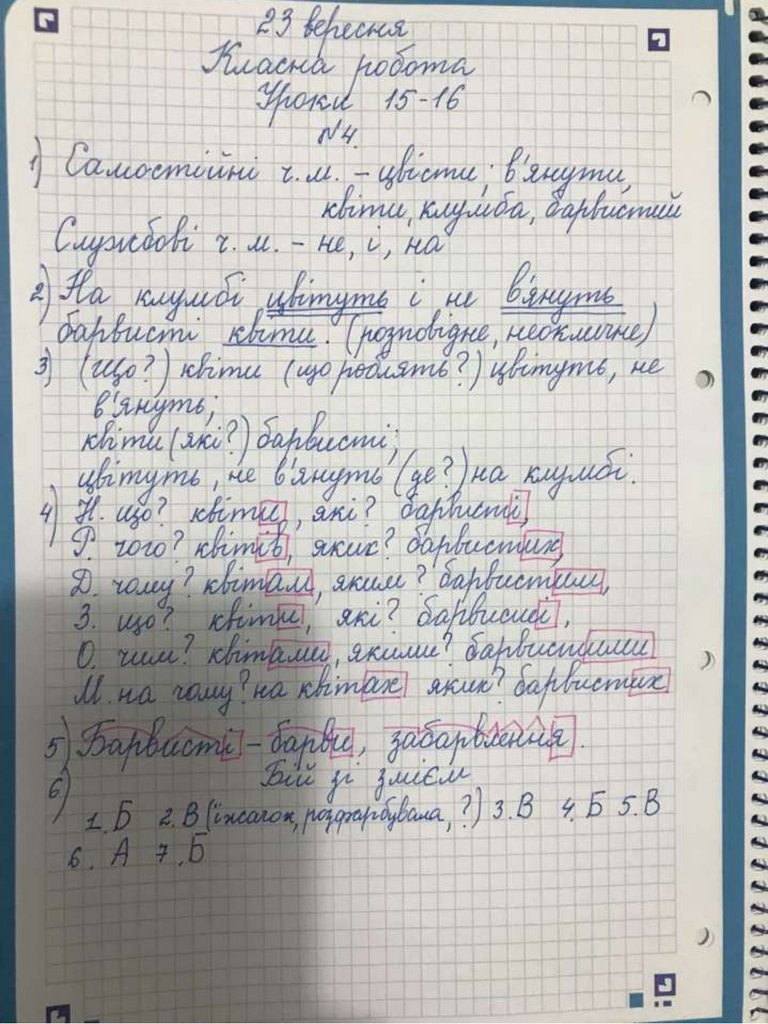 23 вересня
Класна робота
Уроки 15-16
№4.
1) Самостійні ч.м. – цвісти, в'янути,
квіти, клумба, барвистий
Службові ч.м. – не, і, на
2) На клумбі цвітуть і не в'януть
барвисті квіти. (розповідне, неокличне)
3) (Що?) квіти (що роблять?) цвітуть, не
в'януть;
квіти (які?) барвисті;
цвітуть, не в'януть (де?) на клумбі.
4) Н. що? квіти, які? барвисті,
Р. чого? квітів, яких? барвистих,
Д. чому? квітам, яким? барвистим,
З. що? квіти, які? барвисті,
О. чим? квітами, якими? барвистими
М. на чому? на квітах яких? барвистих
5) Барвисті – барви, забарвлення.
6) Бій зі змієм
1. Б 2. В (їжачок, розфарбувала, ?) 3. В 4. Б 5. В
6. А 7. Б